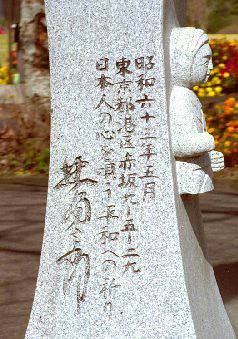 昭和六十三年五月
東京都港区赤坂九ー五ー二九
日本人の心を育う平和への祈り